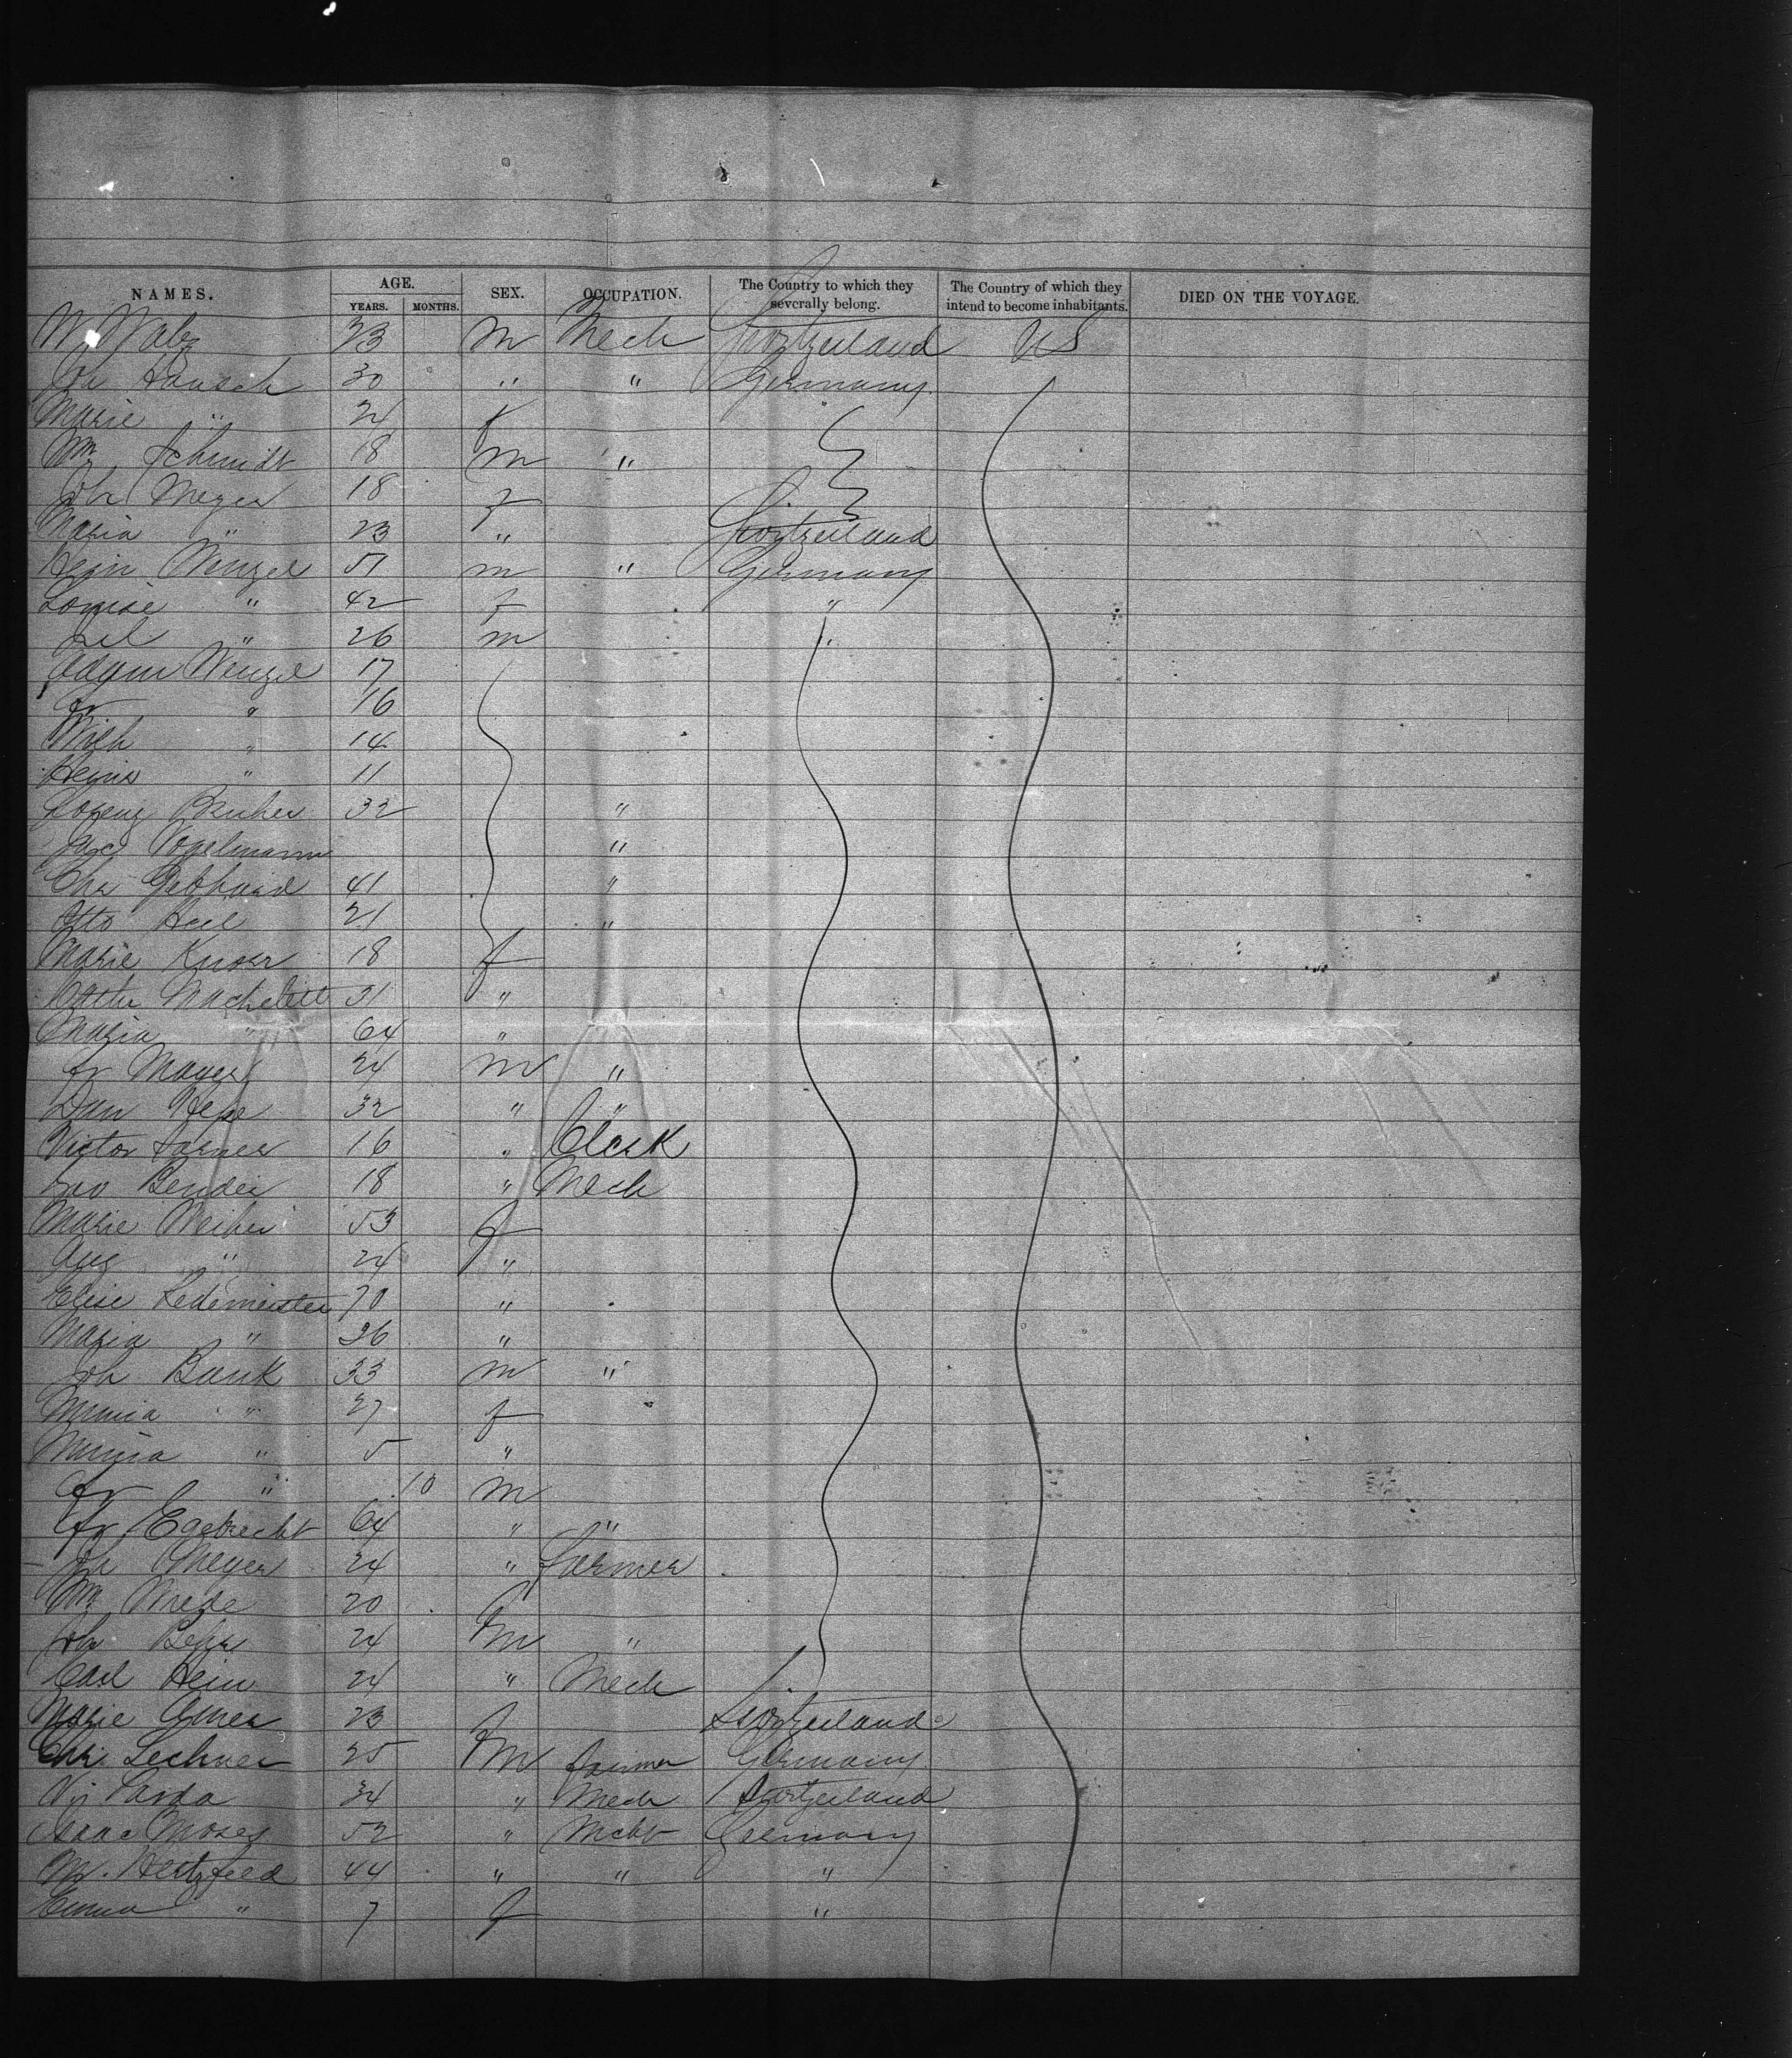 NAMES. AGE. YEARS. MONTHS. SEX. OCCUPATION. The Country to which they severally belong. The Country of which they intend to become inhabitants. DIED ON THE VOYAGE.
W 23 m Mech Switzerland US
Joh Hausch 30 " " Germany
Marie " 24 f
Wm Schmidt 18 m "
Joh Meyer 18 f
Maria " 23 " Switzerland
Hein Wenzel 51 m " Germany
Louise " 42 f "
" 26 m "
Adam Wenzel 17
Fr " 16
Wilh " 14
Heinr " 11
Lorenz 32 "
Jac Vogelmann "
Chr Gebhard 41 "
Otto Heil 21 "
Marie Knorr 18 f
Cathr Machelett 31 "
Maria " 64 "
Fr Mayer 24 m "
Dan Hepe 32 " "
Victor 16 " Clerk
Bender 18 " Mech
Marie Weiher 53 f
Aug " 24 "
Elise Ledemeister 70 "
Maria " 26 "
Joh Bank 33 m "
Minnia " 27 f
" 5 "
Fr " 10 m
Fr Egebrecht 64 " "
Meyer 24 " Farmer
Wm Mede 20 f
Joh Behr 24 m "
Carl Hein 24 " Mech
Marie 23 f Switzerland
Chr Lechner 25 m farmer Germany
Sarda 34 " Mech Switzerland
Isaac Moses 52 " Mcht Germany
M. Hertzfeld 44 " " "
Emma " 7 f "